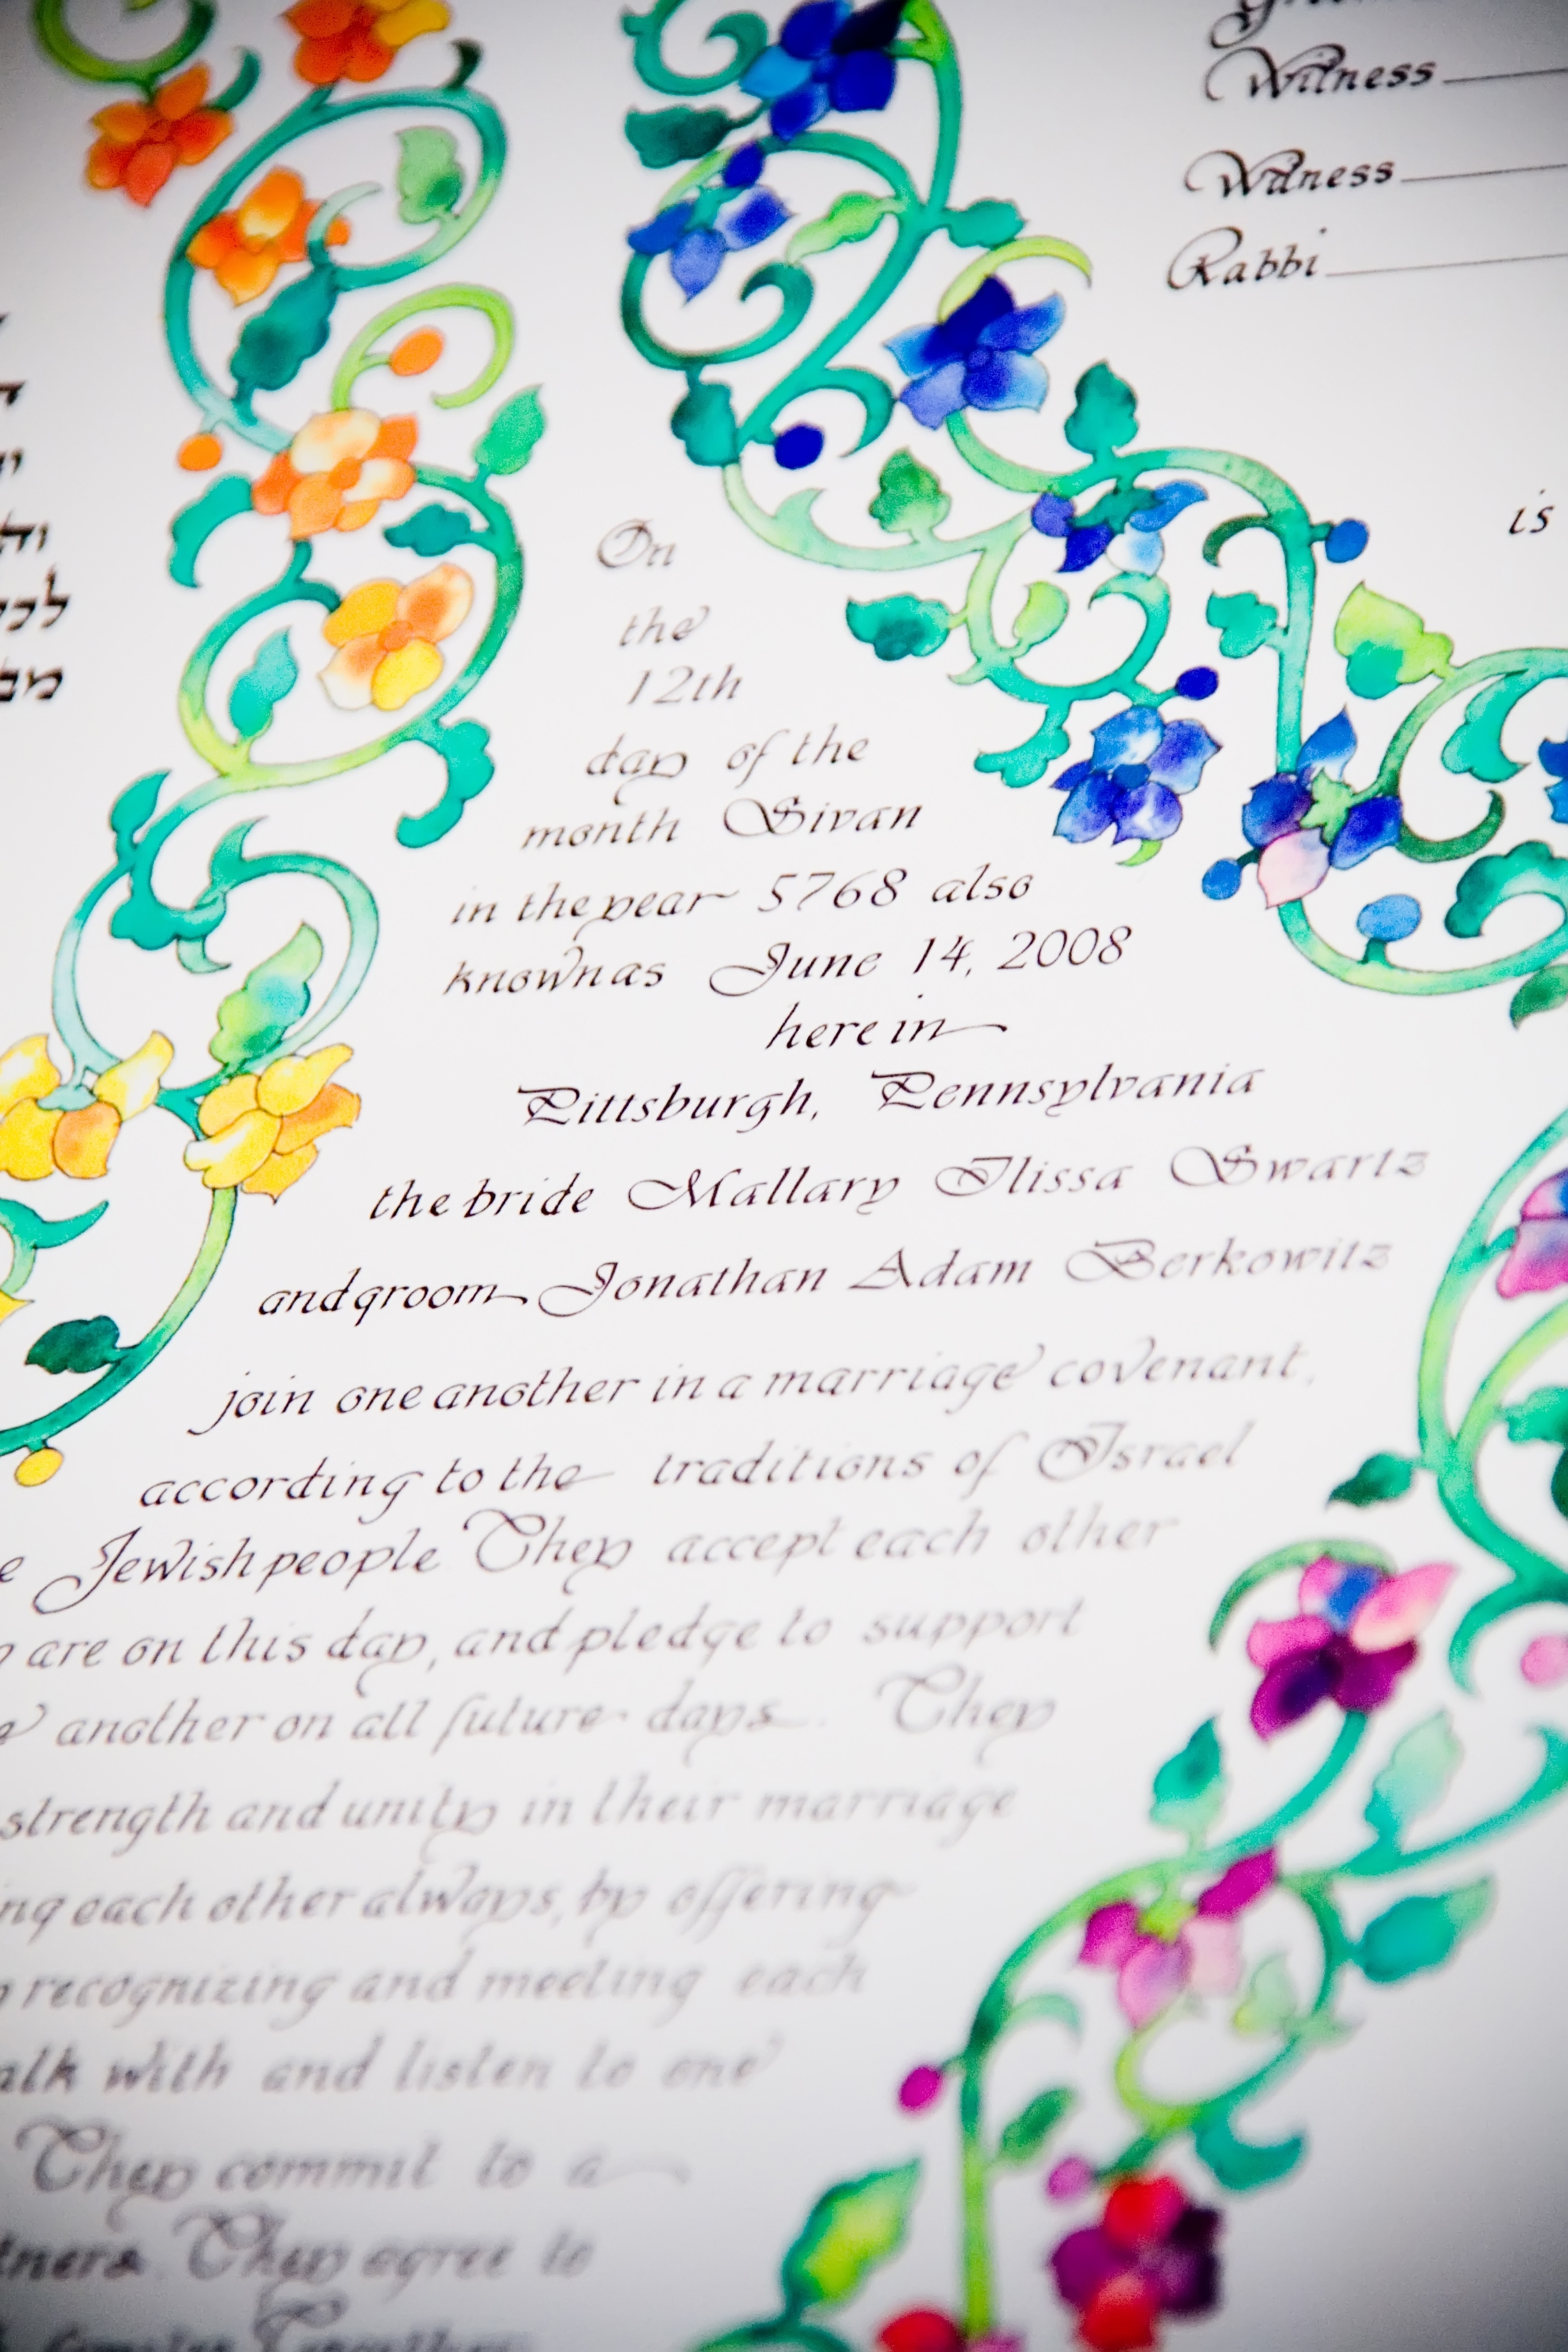 Groom
Witness
Witness
Rabbi
is
לכל
On
the
12th
day of the
month Sivan
in the year 5768 also
known as June 14, 2008
here in
Pittsburgh, Pennsylvania
the bride Mallary Ilissa Swartz
and groom Jonathan Adam Berkowitz
join one another in a marriage covenant,
according to the traditions of Israel
Jewish people They accept each other
are on this day, and pledge to support
another on all future days. They
strength and unity in their marriage
each other always, by offering
recognizing and meeting each
with and listen to one
They commit to a
They agree to